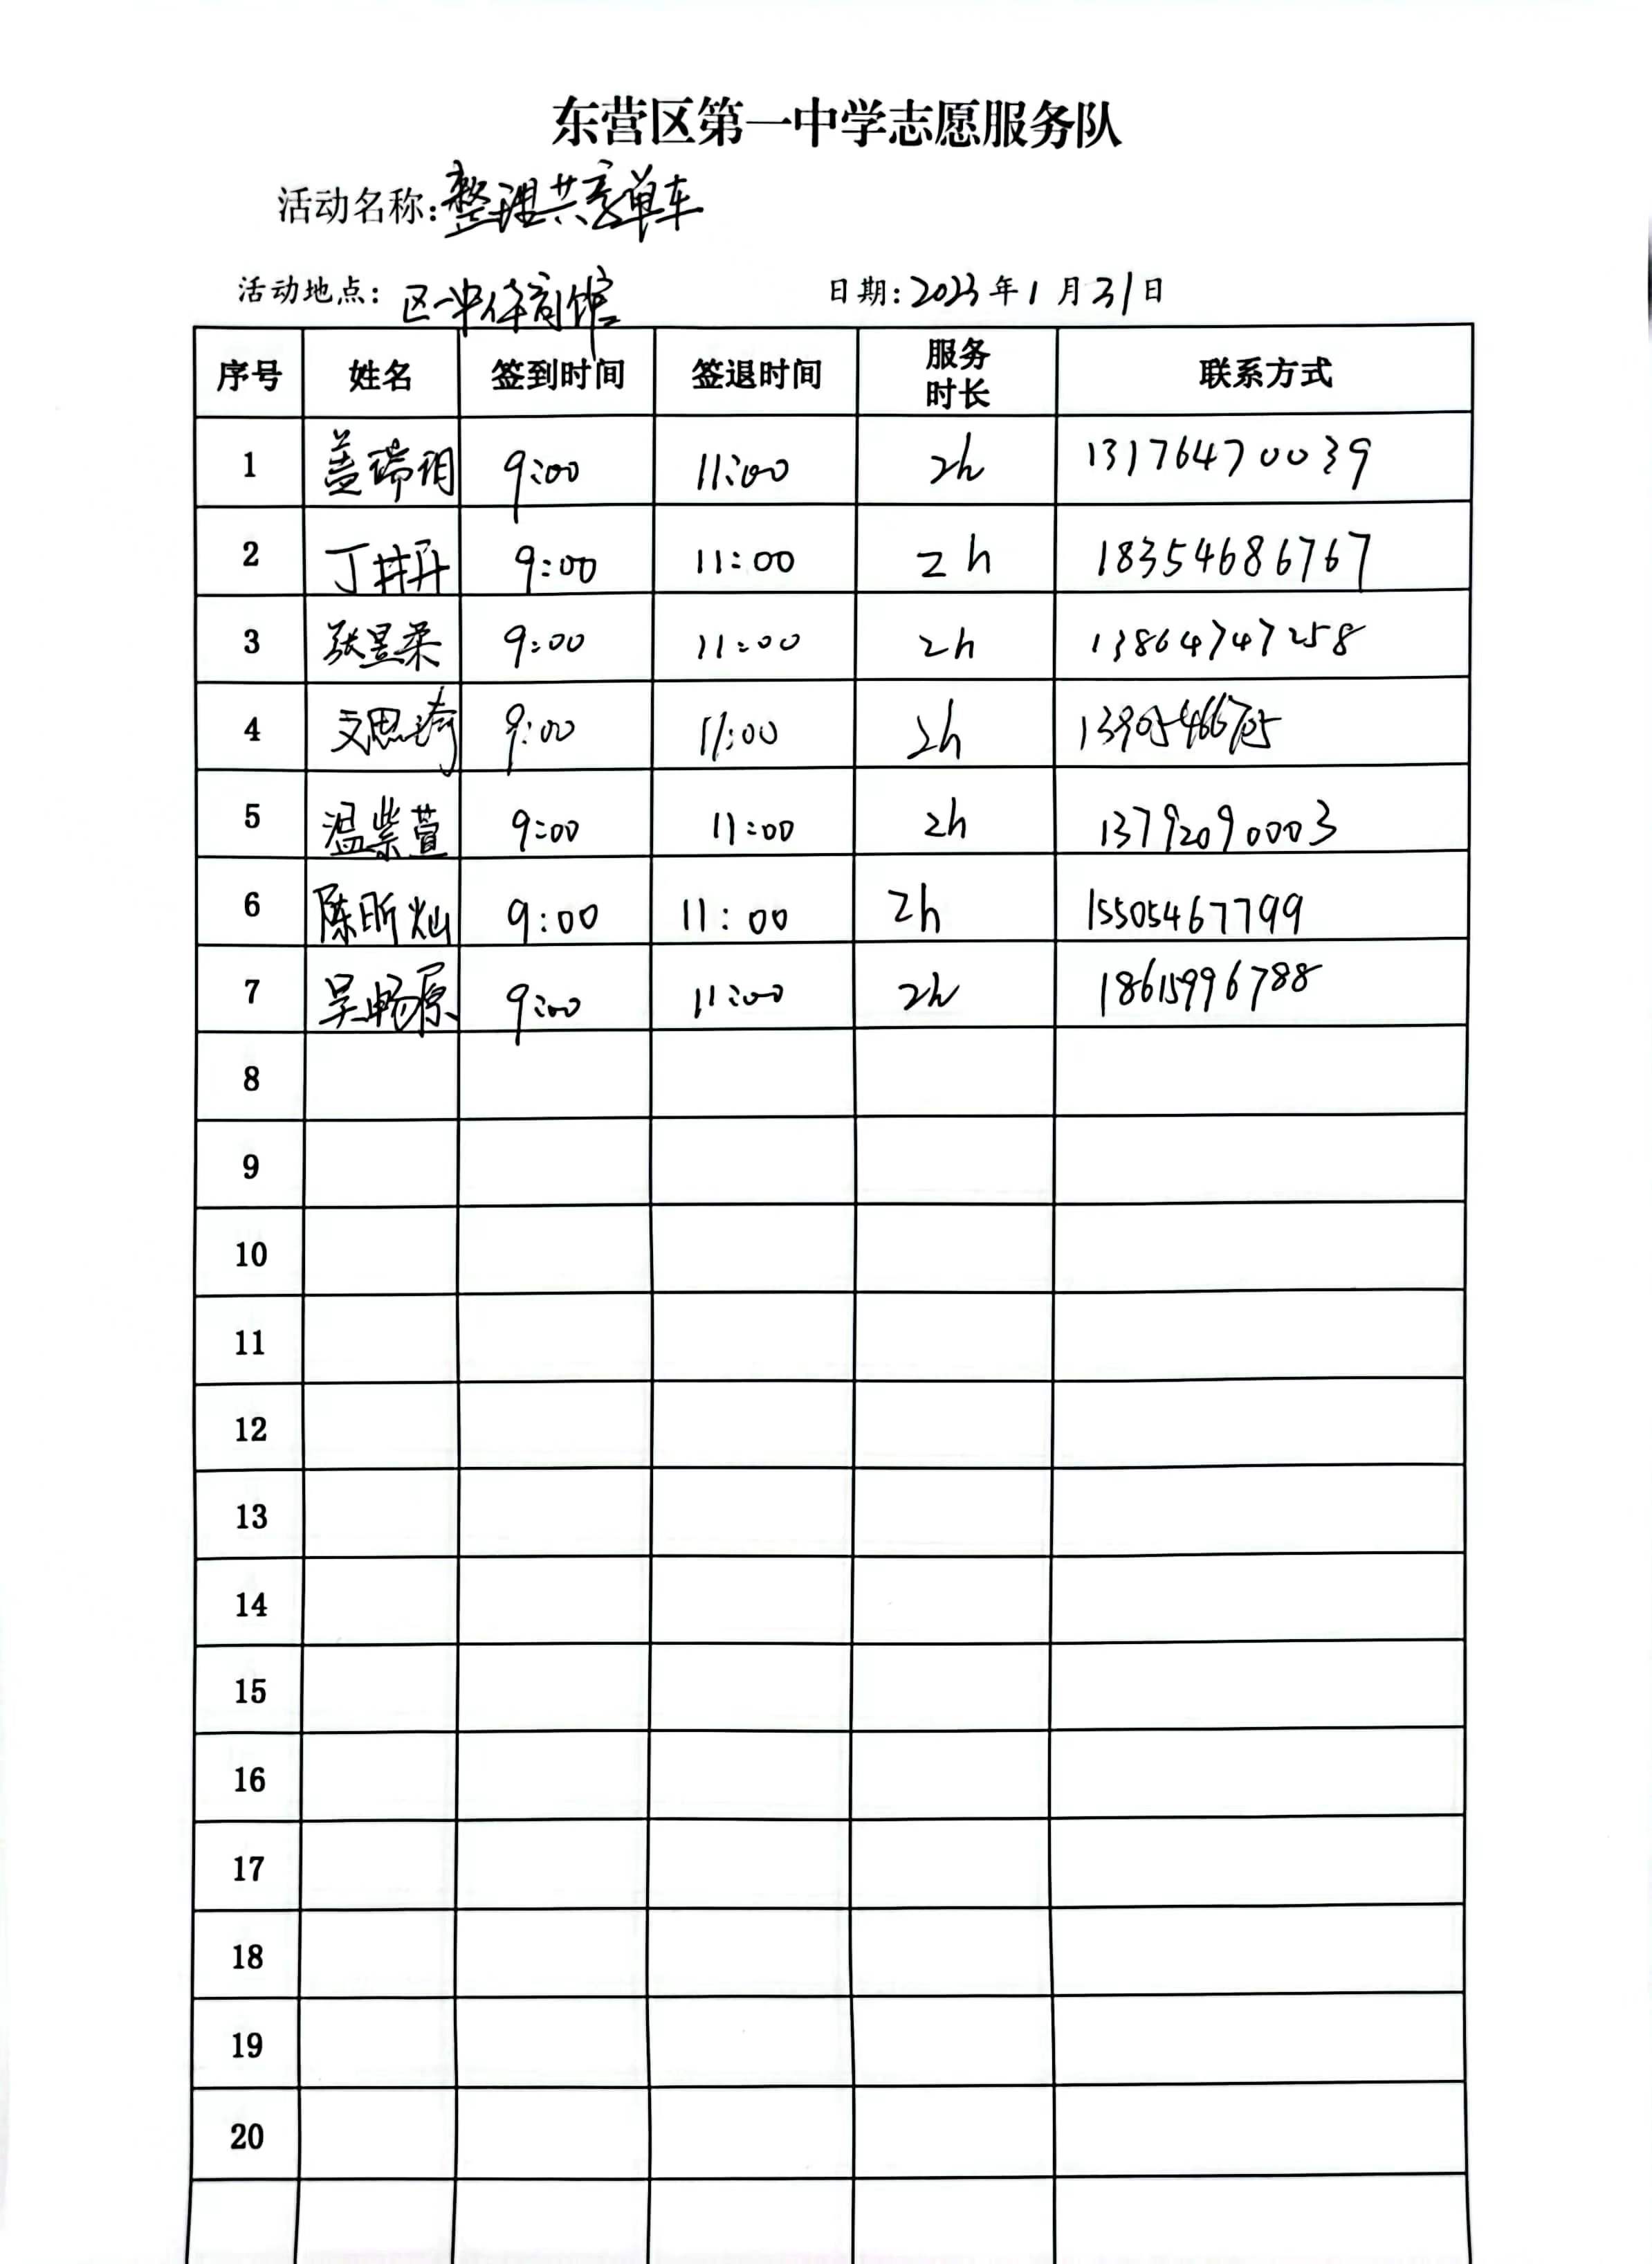 东营区第一中学志愿服务队
活动名称:整理共享单车
活动地点: 区一中体育馆 日期:2023年1月31日
序号 姓名 签到时间 签退时间 服务时长 联系方式
1 盖瑞 9:00 11:00 2h 13176470039
2 丁井升 9:00 11:00 2h 18354686767
3 张昱柔 9:00 11:00 2h 13864747258
4 文思琦 9:00 11:00 2h
5 温紫萱 9:00 11:00 2h 13792090003
6 陈昕灿 9:00 11:00 2h 15505467799
7 吴畅原 9:00 11:00 2h 18615996788
8
9
10
11
12
13
14
15
16
17
18
19
20